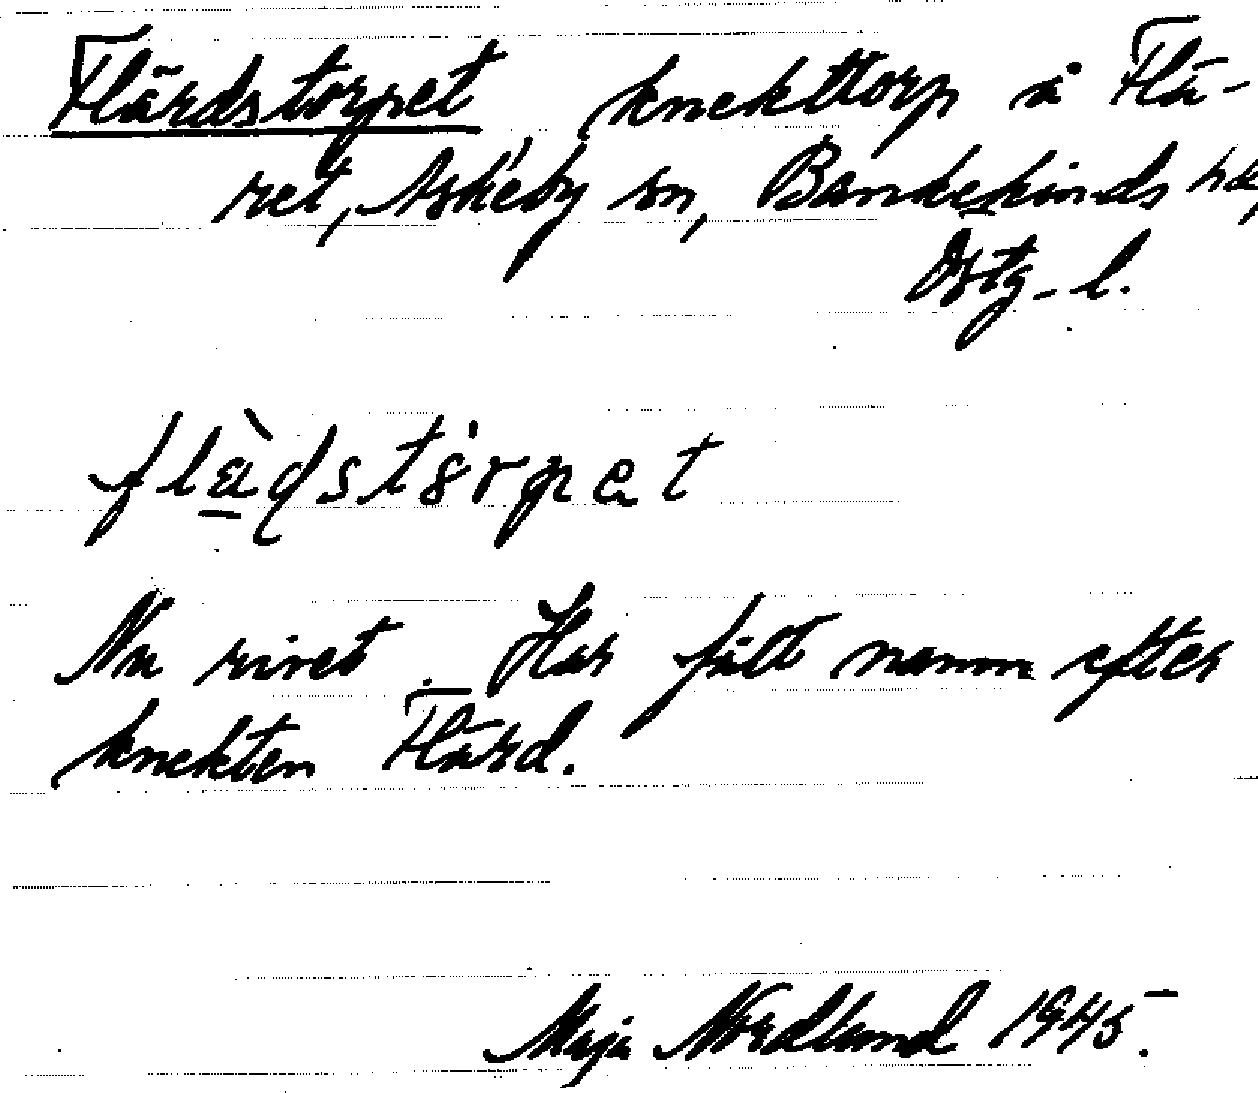 Flärdstorpet knekttorp å Flä-
ret, Askeby sn, Bankekinds hd,
Östg. l.
flädstorpet
Nu rivet. Har fått namn efter
knekten Flärd.
Maja Nordlund 1945.